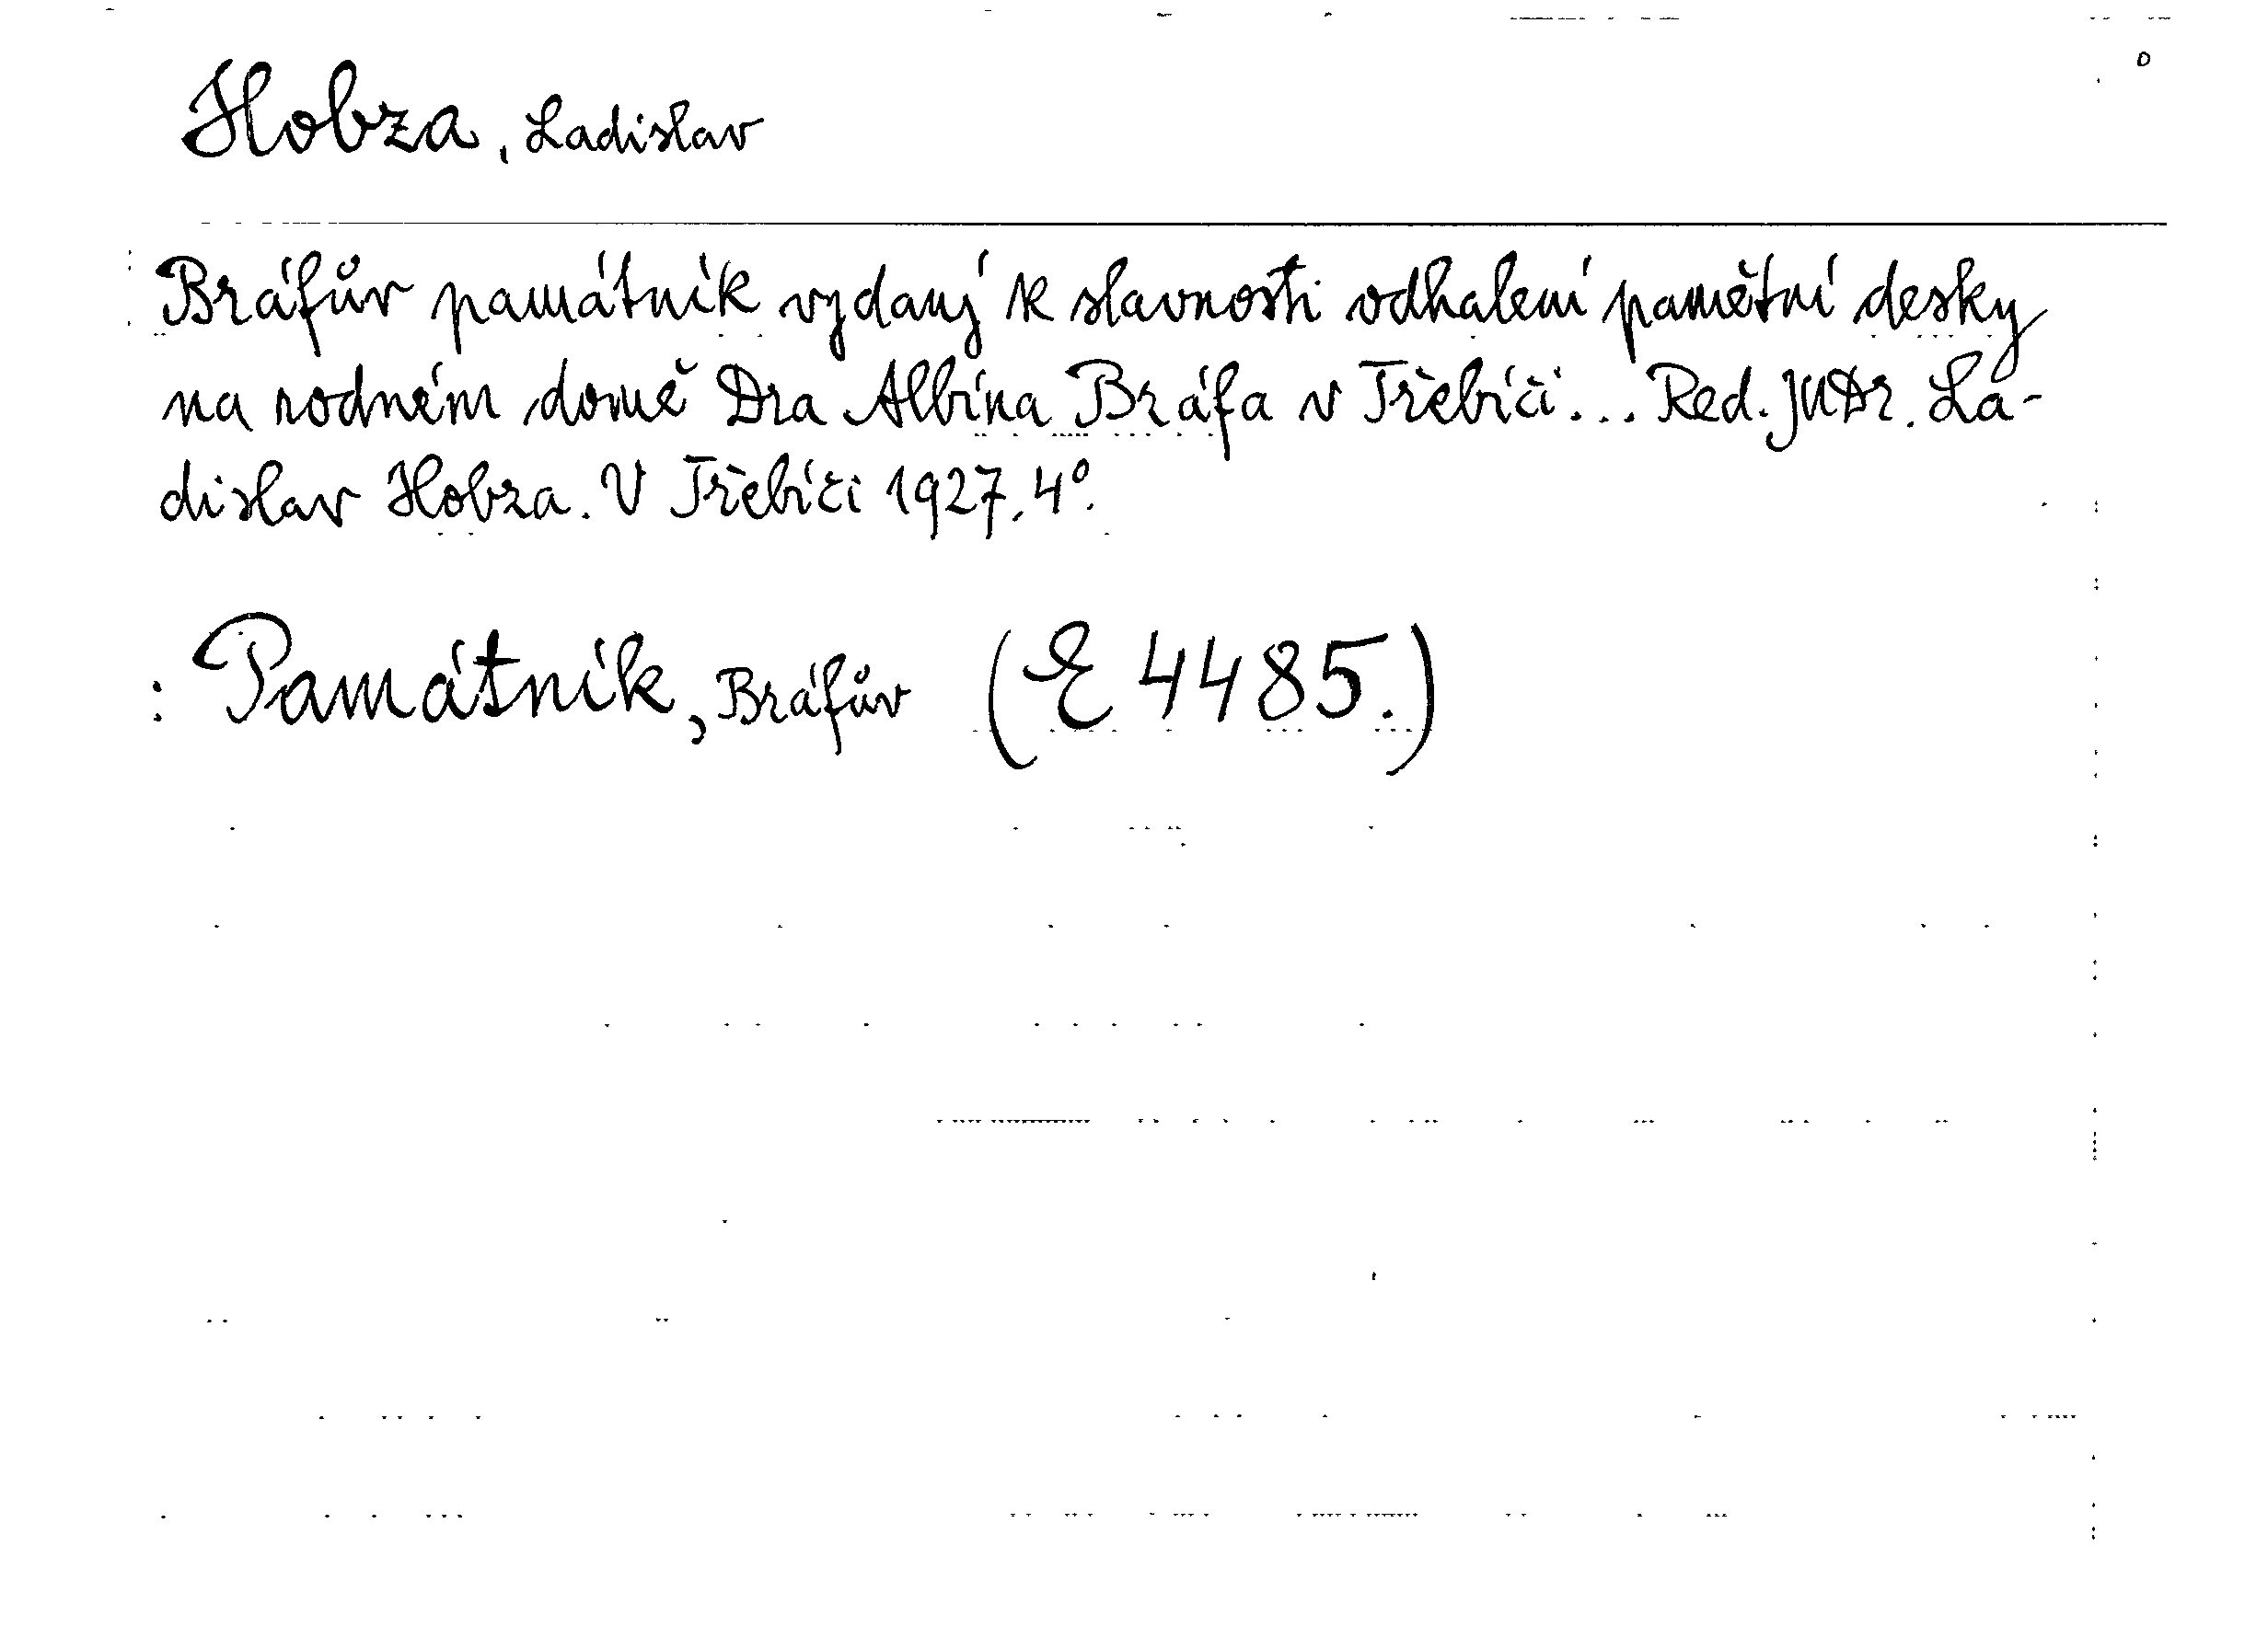 Hobza, Ladislav
Bráfův památník vydaný k slavnosti odhalení pamětní desky
na rodném domě Dra Albína Bráfa v Třebíči... Red. JUDr. La-
dislav Hobza. V Třebíči 1927. 4°.
: Památník, Bráfův (E 4485.)